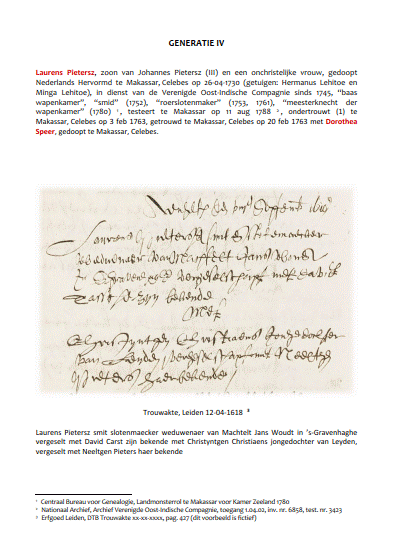 GENERATIE IV
Laurens Pietersz, zoon van Johannes Pietersz (III) en een onchristelijke vrouw, gedoopt
Nederlands Hervormd te Makassar, Celebes op 26-04-1730 (getuigen: Hermanus Lehitoe en
Minga Lehitoe), in dienst van de Verenigde Oost-Indische Compagnie sinds 1745, “baas
wapenkamer”, “smid” (1752), “roerslotenmaker” (1753, 1761), “meesterknecht der
wapenkamer” (1780) ¹, testeert te Makassar op 11 aug 1788 ², ondertrouwt (1) te
Makassar, Celebes op 3 feb 1763, getrouwd te Makassar, Celebes op 20 feb 1763 met Dorothea
Speer, gedoopt te Makassar, Celebes.
Laurens Pietersz smit slotemaecker
weduwenaer van Machtelt Jans Woudt
in
vergeselt met David
Carst zijn bekende
met
Christyntgen Christiaens jongedochter
van Leyden, vergeselt met Neeltgen
Pieters haer bekende
Trouwakte, Leiden 12-04-1618 ³
Laurens Pietersz smit slotenmaecker weduwenaer van Machtelt Jans Woudt in ’s-Gravenhaghe
vergeselt met David Carst zijn bekende met Christyntgen Christiaens jongedochter van Leyden,
vergeselt met Neeltgen Pieters haer bekende
¹ Centraal Bureau voor Genealogie, Landmonsterrol te Makassar voor Kamer Zeeland 1780
² Nationaal Archief, Archief Verenigde Oost-Indische Compagnie, toegang 1.04.02, inv. nr. 6858, test. nr. 3423
³ Erfgoed Leiden, DTB Trouwakte xx-xx-xxxx, pag. 427 (dit voorbeeld is fictief)